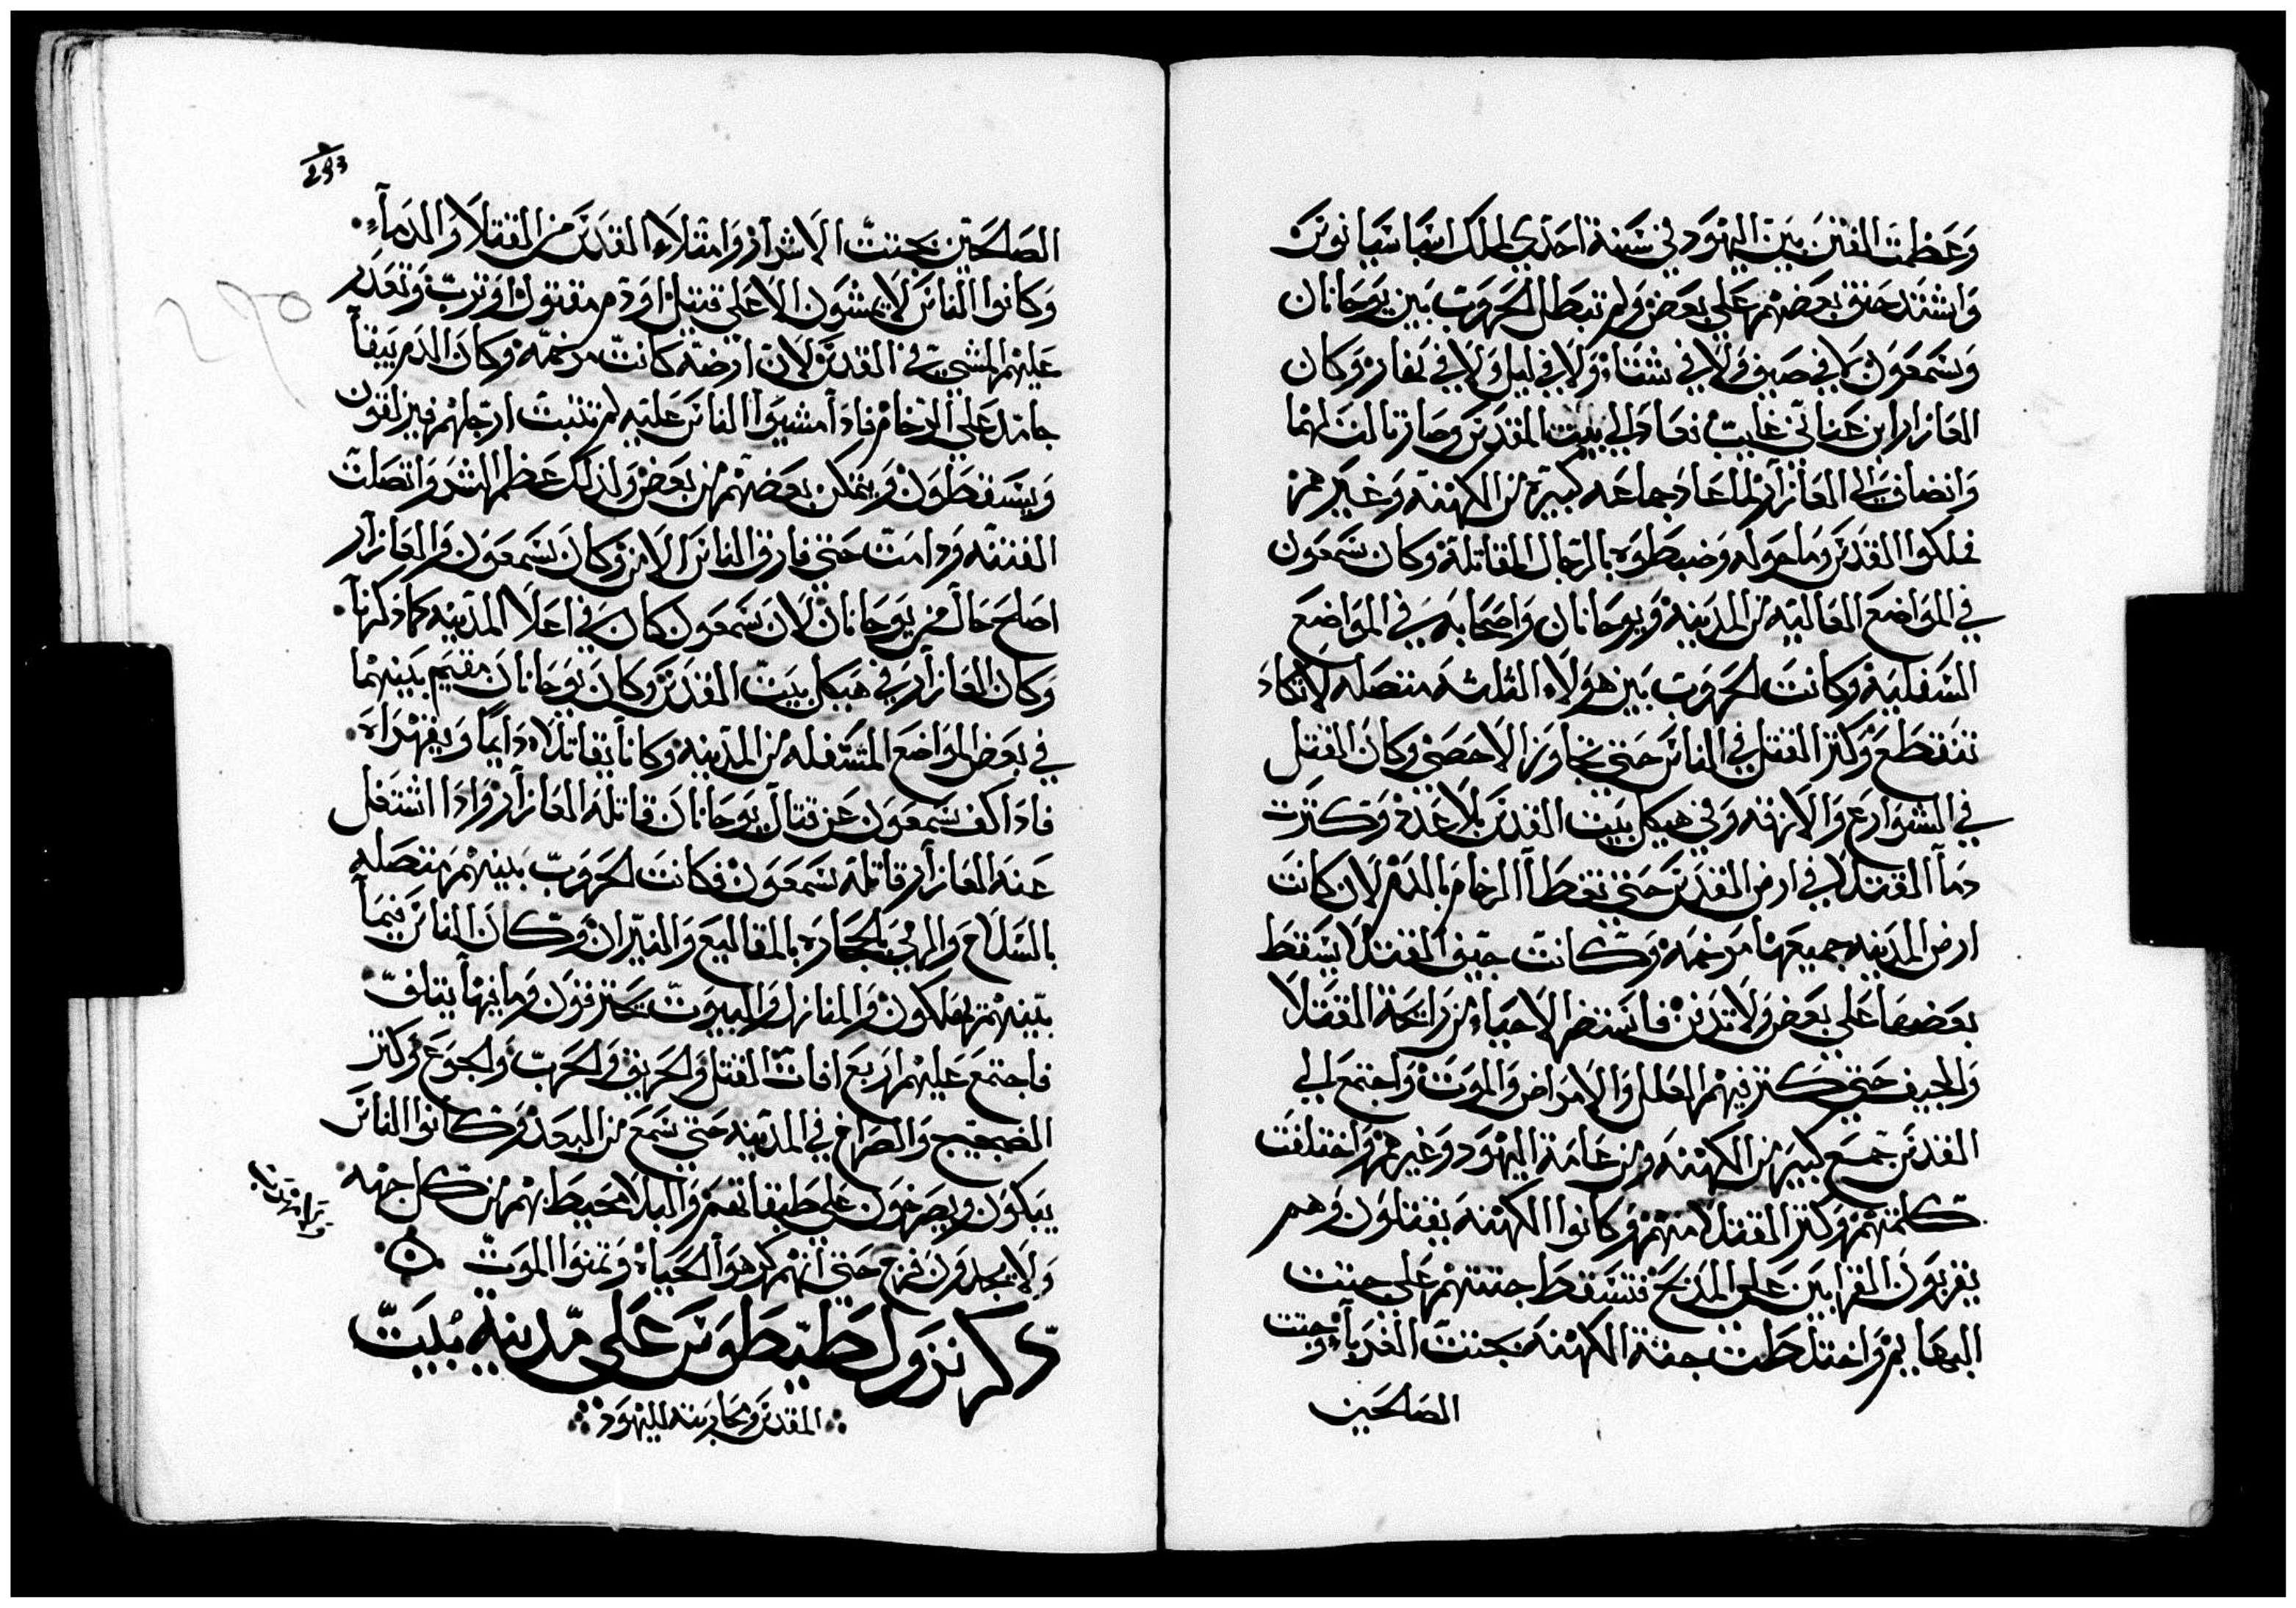 وعظمت الفتن بين اليهود في سنة احدي لملك اسباسيانوس
واشتد حنق بعضهم علي بعض ولم تبطل الحروب بين يوحانان
وشمعون لا في صيف ولا في شتاء ولا في ليل ولا في نهار وكان
العازار ابن عناني غايب فعاد الي بيت المقدس وصار ثالث لهما
وانضاف الي العازار لما عاد جماعه كبيرة من الكهنة وغيرهم
فملكوا القدس وما حوله وضبطوه بالرجال المقاتلة وكان شمعون
في المواضع العاليه من المدينة ويوحانان واصحابه في المواضع
السفلية وكانت الحروب بين هولاء الثلثه متصله لا تكاد
تنقطع وكثر القتل في الناس حتي تجاوز الاحصي وكان القتل
في الشوارع والازقه وفي هيكل بيت القدس بلا عدد وكثرت
دمآ القتلا في ارض القدس حتي تغطآ الرخام بالدم لان كانت
ارض المدينه جميعها مرخمه وكانت جيف القتلا يسقط
بعضها علي بعض ولا تدفن فاستضر الاحياء من رايحة القتلا
والجيف حتي كثر فيهم العلل والامراض والموت واجتمع الي
القدس جمع كبير من الكهنه ومن عامة اليهود وغيرهم واختلفت
كلمتهم وكثر القتلا منهم وكانوا الكهنه يقتلون وهم
يقربون القرابين علي المذبح فتسقط جثتهم علي جثت
البهايم واختلطت جثة الكهنه بجثت الغربآء وجثت
الصالحين
293
الصالحين بجثت الاشرار وامتلاء القدس من القتلا والدمآء
وكانوا الناس لا يمشون الا علي قتيل او دم مقتول او ترب وتعدر
عليهم المشي في القدس لان ارضه كانت مرخمه وكان الدم يبقآ
جامد علي الرخام فادا مشيوا الناس عليه لم تثبت ارجلهم فيزلقون
ويسقطون ويتمكن بعضهم من بعض ولذلك عظم الشر واتصلت
الفتنه ودامت حتي فارق الناس الامن وكان شمعون والعازار
اصلح حال من يوحانان لان شمعون كان في اعلا المدينه كما ذكرنا
وكان العازار في هيكل بيت القدس وكان يوحانان مقيم بينهما
في بعض المواضع المتسفله من المدينه وكانا يقاتلاه دايما ويقهراه
فادا كف شمعون عن قتال يوحانان قاتله العازار وادا اشتغل
عنه العازار قاتله شمعون فكانت الحروب بينهم متصله
بالسلاح والرمي بالحجاره بالمقاليع والنيران وكان الناس فيما
بينهم يهلكون والمنازل والبيوت يحترقون وما فيها يتلف
فاجتمع عليهم اربع افات القتل والحريق والحرب والجوع وكثر
الضجيج والصراخ في المدينه حتي سمع من البعد وكانوا الناس
يبكون ويصرخون علي طبقاتهم والبلا محيط بهم من كل جهه
ولا يجدون فرج حتي انهم كرهوا الحياه وتمنوا الموت
ذكر نزول طيطوس علي مدينه بيت
المقدس ومحاربته لليهود